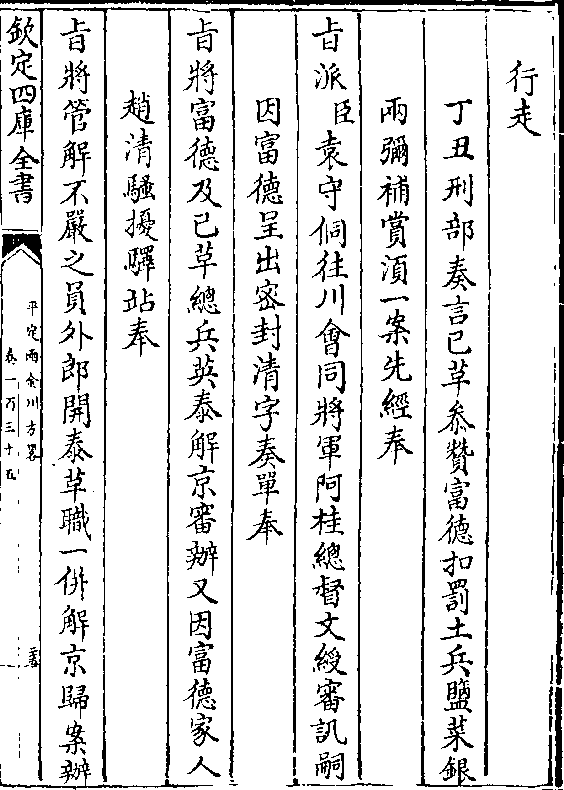 行走
丁丑刑部奏言已革叅贊富德扣罰土兵鹽菜銀
兩彌補賞湏一案先經奉
旨派臣袁守侗往川會同將軍阿桂總督文綬審訊嗣
因富德呈出密封清字奏單奉
旨將富德及已革總兵英泰解京審辦又因富德家人
趙清騷擾驛站奉
旨將管解不嚴之員外郎開泰革職一併解京歸案辦
欽定四庫全書
平定兩金川方畧
卷一百三十五